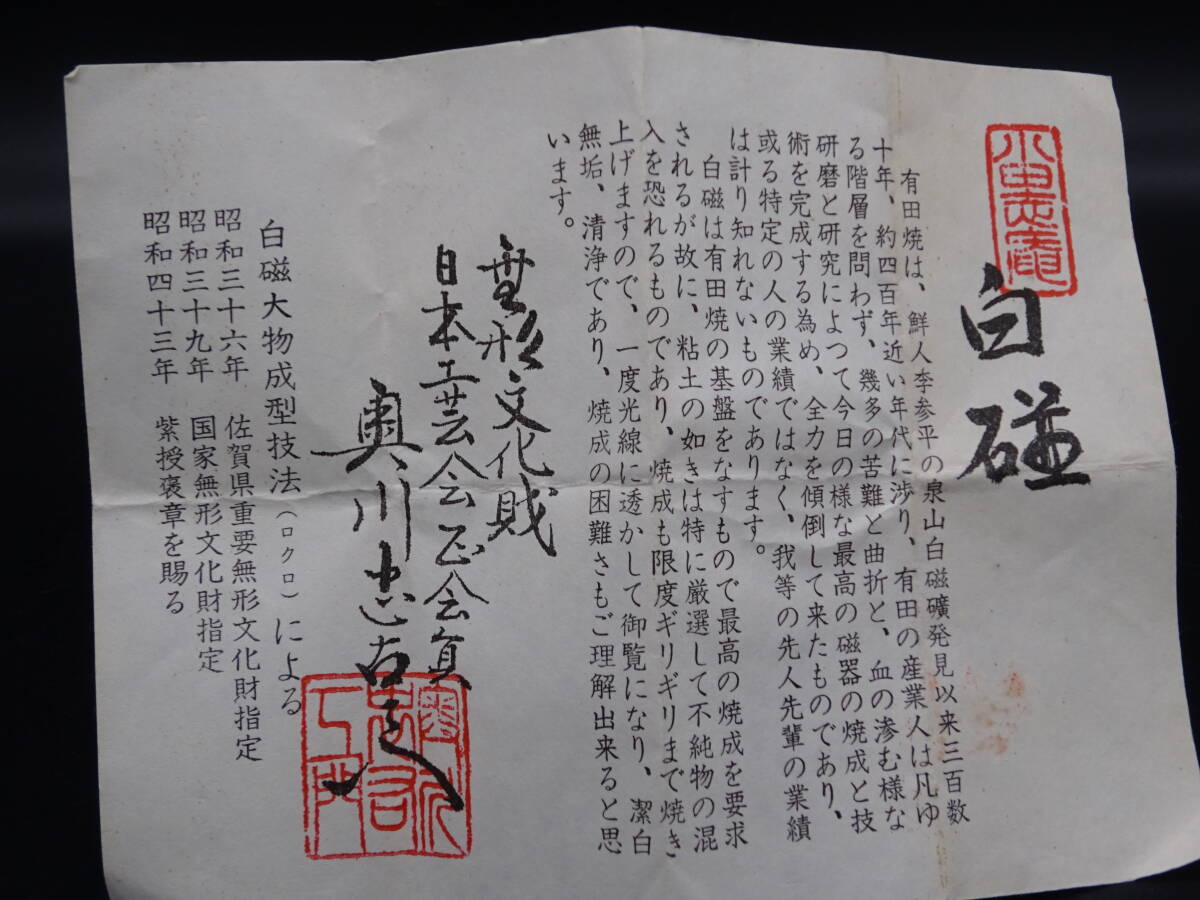 白磁
有田焼は、鮮人李参平の泉山白磁礦発見以来三百数
十年、約四百年近い年代に渉り、有田の産業人は凡ゆ
る階層を問わず、幾多の苦難と曲折と、血の滲む様な
研磨と研究によつて今日の様な最高の磁器の焼成と技
術を完成する為め、全力を傾倒して来たものであり、
或る特定の人の業績ではなく、我等の先人先輩の業績
は計り知れないものであります。
白磁は有田焼の基盤をなすもので最高の焼成を要求
されるが故に、粘土の如きは特に厳選して不純物の混
入を恐れるものであり、焼成も限度ギリギリまで焼き
上げますので、一度光線に透かして御覧になり、潔白
無垢、清浄であり、焼成の困難さもご理解出来ると思
います。
無形文化財
日本工芸会正会員
奥川忠右ェ門
白磁大物成型技法（ロクロ）による
昭和三十六年　佐賀県重要無形文化財指定
昭和三十九年　国家無形文化財指定
昭和四十三年　紫授褒章を賜る